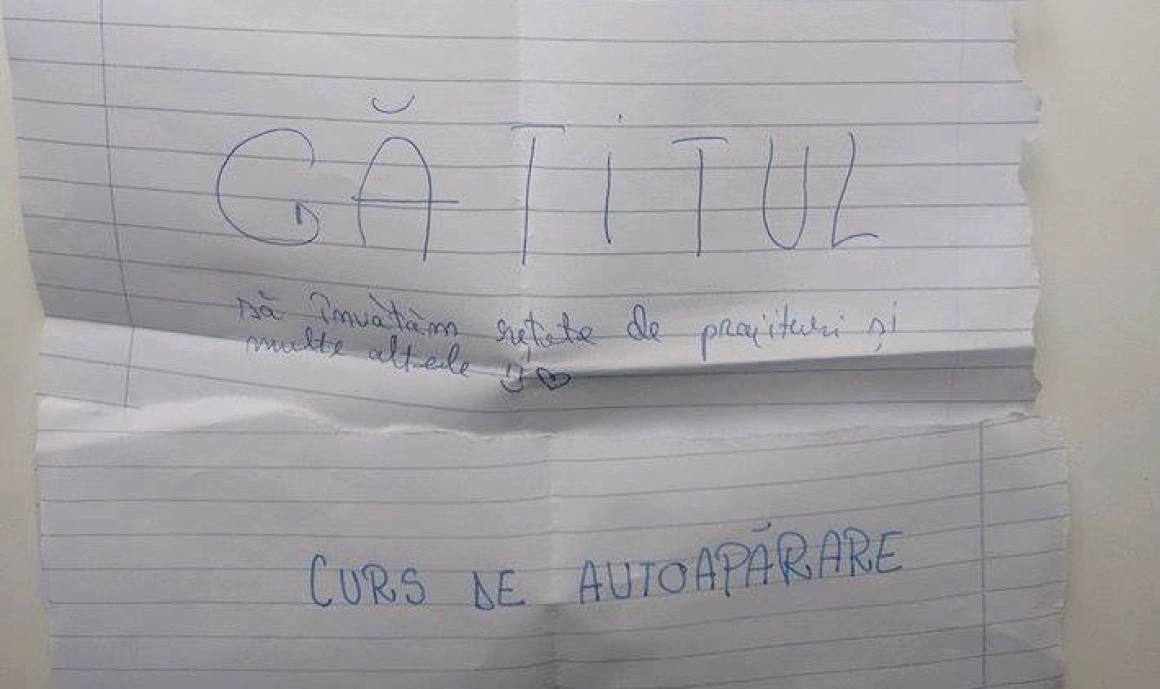 GĂTITUL
să învățăm rețete de prajituri și
multe altele
CURS DE AUTOAPĂRARE